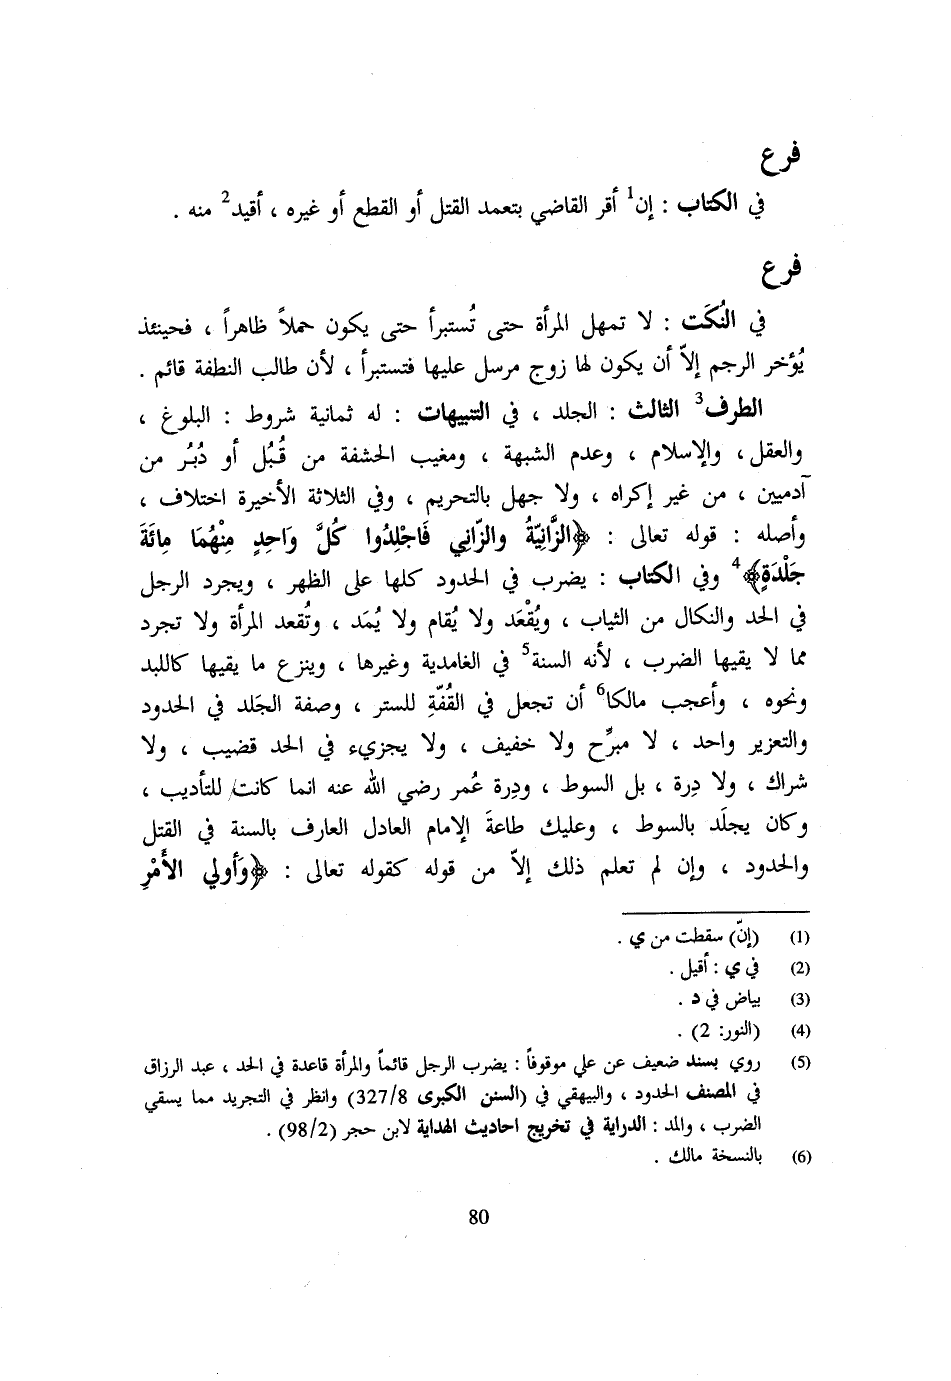 فرع
في الكتاب : إن1 أقر القاضي بتعمد القتل أو القطع أو غيره ، أقيد2 منه .
فرع
في النُكَت : لا تمهل المرأة حتى تُستبرأ حتى يكون حملاً ظاهراً ، فحينئذ
يُؤخر الرجم إلاّ أن يكون لها زوج مرسل عليها فتستبرأ ، لأن طالب النطفة قائم .
الطرف3 الثالث : الجلد ، في التنبيهات : له ثمانية شروط : البلوغ ،
والعقل ، والإسلام ، وعدم الشبهة ، ومغيب الحشفة من قُبُل أو دُبُر من
آدميين ، من غير إكراه ، ولا جهل بالتحريم ، وفي الثلاثة الأخيرة اختلاف ،
وأصله : قوله تعالى : ﴿الزَّانِيَّةُ والزّانِي فَاجْلِدُوا كُلَّ وَاحِدٍ مِنْهُمَا مِائَةَ
جَلْدَةٍ﴾4 وفي الكتاب : يضرب في الحدود كلها على الظهر ، ويجرد الرجل
في الحد والنكال من الثياب ، ويُقْعَد ولا يُقام ولا يُمَد ، وتُقعد المرأة ولا تجرد
مما لا يقيها الضرب ، لأنه السنة5 في الغامدية وغيرها ، وينزع ما يقيها كاللبد
ونحوه ، وأعجب مالكا6 أن تجعل في القُفّةِ للستر ، وصفة الجَلد في الحدود
والتعزير واحد ، لا مبرِّح ولا خفيف ، ولا يجزيء في الحد قضيب ، ولا
شراك ، ولا دِرة ، بل السوط ، ودِرة عُمر رضي الله عنه انما كانت للتأديب ،
وكان يجلَد بالسوط ، وعليك طاعةَ الإمام العادل العارف بالسنة في القتل
والحدود ، وإن لم تعلم ذلك إلاّ من قوله كقوله تعالى : ﴿وَأولي الأَمْرِ
(1) (إنّ) سقطت من ي .
(2) في ي : أقيل .
(3) بياض في د .
(4) (النور: 2) .
(5) روي بسند ضعيف عن علي موقوفاً : يضرب الرجل قائماً والمرأة قاعدة في الحد ، عبد الرزاق
في المصنف الحدود ، والبيهقي في (السنن الكبرى 327/8) وانظر في التجريد مما يسقي
الضرب ، والمد : الدراية في تخريج احاديث الهداية لابن حجر (98/2) .
(6) بالنسخة مالك .
80